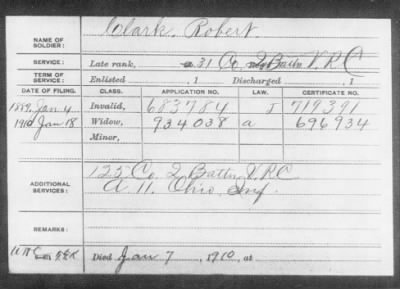 NAME OF SOLDIER: Clark, Robert.
SERVICE: Late rank, 31 Co. 2 Battn V.R.C
TERM OF SERVICE: Enlisted , 1 Discharged , 1
DATE OF FILING. CLASS. APPLICATION NO. LAW. CERTIFICATE NO.
1889, Jan 4 Invalid, 683784 J 719391
1910 Jan 18 Widow, 934038 a 696934
Minor,
ADDITIONAL SERVICES: 125 Co. 2 Battn V.R.C
A 11. Ohio Inf.
REMARKS:
Died Jan 7, 1910, at